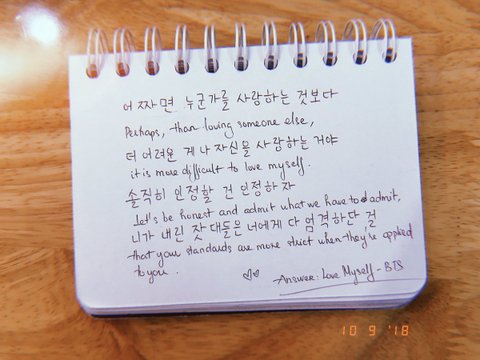 어쩌면 누군가를 사랑하는 것보다
Perhaps, than loving someone else,
더 어려운 게 나 자신을 사랑하는 거야
it is more difficult to love myself.
솔직히 인정할 건 인정하자
Let's be honest and admit what we have to admit,
니가 내린 잣대들은 너에게 다 엄격하단 걸
that your standards are more strict when they're applied
to you.
Answer: Love Myself - BTS
10 9 '18